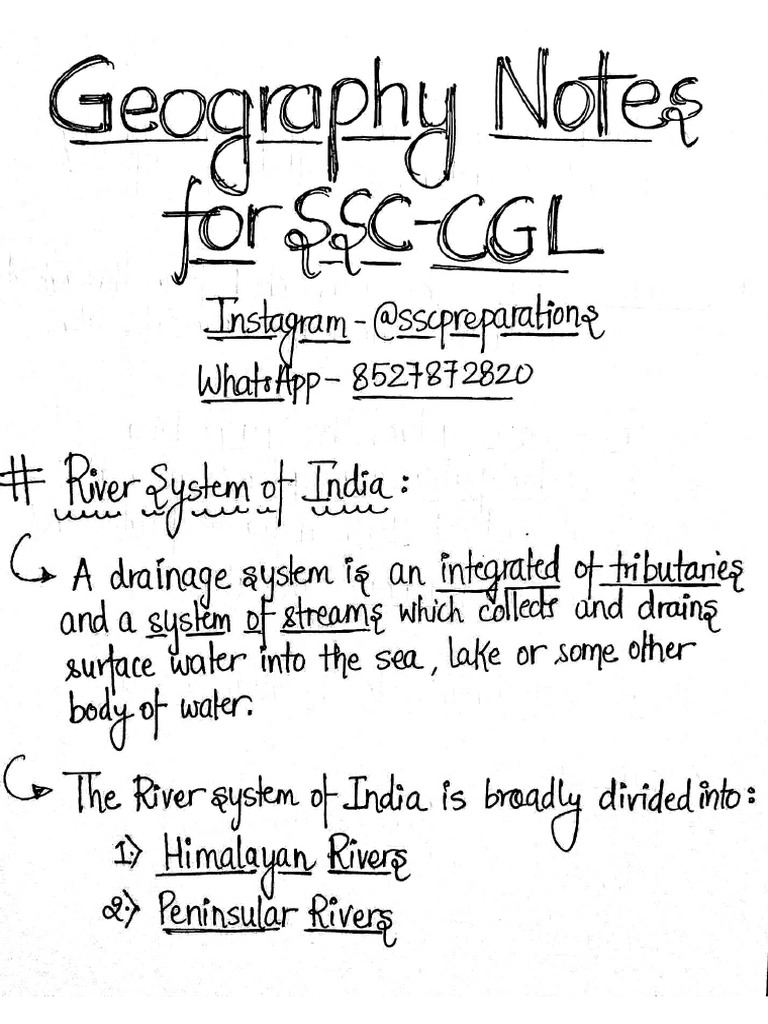 Geography Notes
for SSC-CGL
Instagram - @sscpreparations
WhatsApp - 8527872820
# River System of India :
↳ A drainage system is an integrated of tributaries
and a system of streams which collects and drains
surface water into the sea, lake or some other
body of water.
↳ The River system of India is broadly divided into :
1.) Himalayan Rivers
2.) Peninsular Rivers